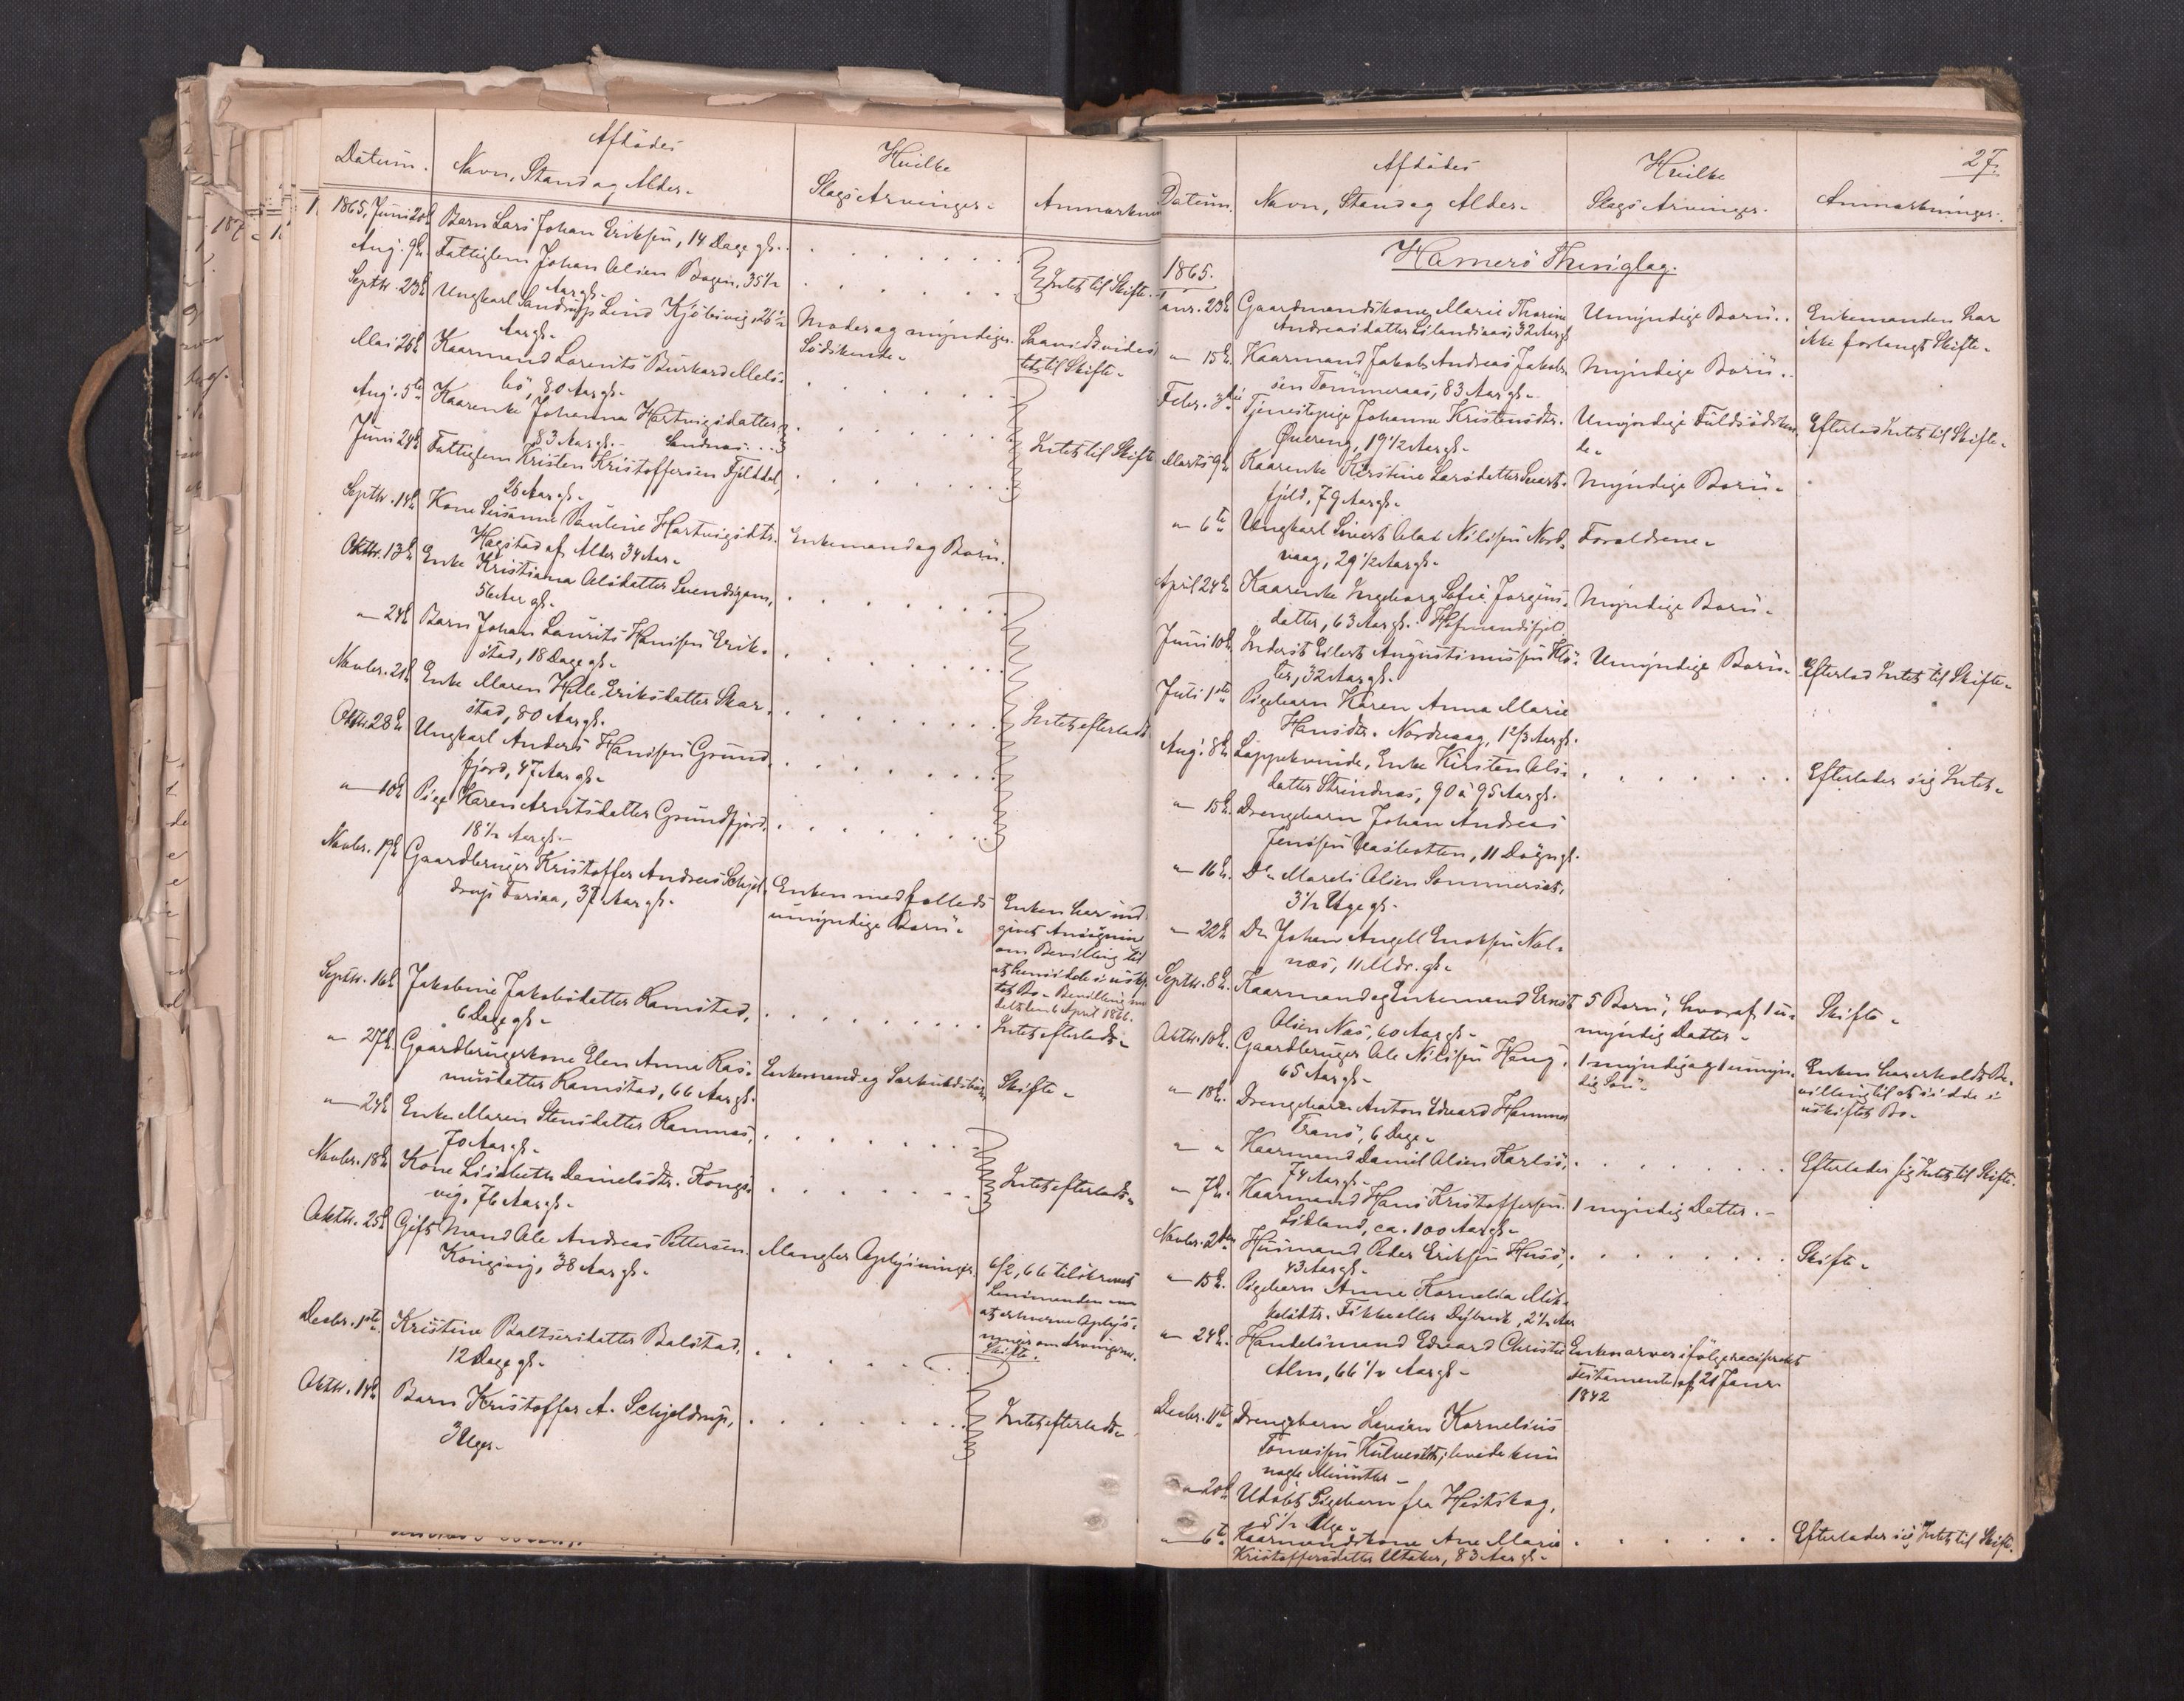 Datum.
Afdödes
Navn, Stand og Alder.
Hvilke
Slags Arvinger.
1865, Juni 20de
Barn Lars Johan Eriksen, 14 Dage gl.
Aug. 9de
Fattiglem Johan Olsen Bogen, 35 1/2
Aar gl.
Intet til Skifte.
Septbr. 23de
Ungkarl Lind Kjöbsvig, 26 1/2
Aar gl.
Moder og myndige
Södskende.
til Skifte.
Mai 25de
Kaarmand Lorents Burkard
bö, 80 Aar gl.
Aug. 5te
Kaarenke Johanna Hartvigsdatter
83 Aar gl. Sandnæs
Juni 24de
Fattiglem Kristen Kristoffersen Fjelddal,
26 Aar gl.
Intet til Skifte
Septbr. 14de
Kone Susanne Pauline Hartvigsdtr.
Hegstad af Alder 34 Aar.
Enkemand og Börn.
Oktbr. 13de
Enke Kristiana Olsdatter Svendsgam,
56 Aar gl.
" 24de
Barn Johan Laurits Hansen Erik-
stad, 18 Dage gl.
Novbr. 21de
Enke Maren Helle Eriksdatter Skar-
stad, 80 Aar gl.
Oktbr. 28de
Ungkarl Anders Hansen Grund-
fjord, 47 Aar gl.
Intet efterladt.
" 10de
Pige Karen Arntsdatter Grundfjord,
18 1/2 Aar gl.
Novbr. 19de
Gaardbruger Kristoffer Andreas Schjel-
drup Foriaa, 37 Aar gl.
Enken med fælleds
umyndige Börn.
Enken har ind-
givet Ansögning
om Bevilling til
at hensidde i uskif-
tet Bo. Bevilling
6 April 1866.
Septbr. 16de
Jakobine Jakobsdatter Ramstad,
6 Dage gl.
Intet efterladt.
" 27de
Gaardbrugerkone Elen Anna Ras-
musdatter Ramstad, 66 Aar gl.
Enkemand og Særkuldsbörn
Skifte.
" 24de
Enke Maren Stensdatter Ramnæs,
70 Aar gl.
Novbr. 18de
Kone Lisabeth Danielsdtr. Kongs-
vig, 76 Aar gl.
Intet efterladt.
Oktbr. 25de
Gift Mand Ole Andreas Pettersen
Kongsvig, 38 Aar gl.
Mangler Oplysninger.
6/2, 66 tilskrevet
Lensmanden om
at erhverve Oplys-
ninger om Arvingerne.
Skifte.
Decbr. 1ste
Kristine Baltsersdatter Balstad,
12 Dage gl.
Oktbr. 14de
Barn Kristoffer A. Schjeldrup,
3 Uger.
Intet efterladt.
27.
Datum.
Afdödes
Navn, Stand og Alder.
Hvilke
Slags Arvinger.
Anmærkninger.
Hamerö Thinglag.
1865.
Janr. 23de
Gaardmandskone Marie Thorine
Andreasdatter 32 Aar gl.
Umyndige Börn.
Enkemanden har
ikke forlangt Skifte.
" 15de
Kaarmand Jakob Andreas Jakob-
sen Tömmeraas, 83 Aar gl.
Myndige Börn.
Febr. 3die
Tjenestepige Johanne Kristensdtr.
Qværeng, 19 1/2 Aar gl.
Umyndige Fuldsödsken-
de.
Efterlod Intet til Skifte.
Marts 9de
Kaarenke Kirstine Larsdatter Svart-
fjeld, 79 Aar gl.
Myndige Börn.
" 6te
Ungkarl Sivert Olai Nilssen Nord-
vaag, 29 1/2 Aar gl.
Forældrene.
April 24de
Kaarenke Ingeborg Sofie Jörgens-
datter, 63 Aar gl. Hofmandsfjeld
Myndige Börn.
Juni 10de
Inderst Eilert Augustinussen Flö-
ter, 32 Aar gl.
Umyndige Börn.
Efterlod Intet til Skifte.
Juli 1ste
Pigebarn Karen Anna Marie
Hansdtr. Nordvaag, 1 2/3 Aar gl.
Aug. 8de
Lappekvinde, Enke Kirsten Ols-
datter Strindnæs, 90 à 95 Aar gl.
Efterlader sig Intet.
" 15de
Drengebarn Johan Andreas
Jenssen 11 Dögn gl.
" 16de
Do. Mareli Olsen Sommerset,
3 1/2 Uge gl.
" 22de
Do. Johan Angell Enoksen Nal-
næs, 11 Mdr. gl.
Septbr. 8de
Kaarmand og Enkemand Ernst
Olsen Næs, 60 Aar gl.
5 Börn, hvoraf 1 u-
myndig Datter.
Skifte.
Oktbr. 10de
Gaardbruger Ole Nilssen Haug,
65 Aar gl.
1 myndig og 1 umyn-
dig Sön.
Enken har erholdt Be-
villing til at sidde i
uskiftet Bo.
" 18de
Drengebarn Anton Edvard Hammer
Tranö, 6 Dage.
" "
Kaarmand Daniel Olsen Karlsö,
74 Aar gl.
Efterlader sig Intet til Skifte.
" 7de
Kaarmand Hans Kristoffersen
Lilland, ca. 100 Aar gl.
1 myndig Datter.
Novbr. 2den
Husmand Peder Eriksen Husö,
43 Aar gl.
Skifte.
" 15de
Pigebarn Anne Kornelia Mik-
kelsdtr. Fikke eller Dybvik, 2 1/2 Aar
" 24de
Handelsmand Edvard Christie
Alm, 66 1/2 Aar gl.
Enken arver ifölge reciprokt
Testamente af 21 Janr.
1842
Decbr. 11te
Drengebarn Kornelius
levede kun
nogle Minuter.
" 20de
Udöbt Pigebarn fra Heitskog,
5 1/2 Uge.
" 6te
Kaarmandskone Ane Marie
Kristoffersdatter Utaker, 83 Aar gl.
Efterlader sig Intet til Skifte.